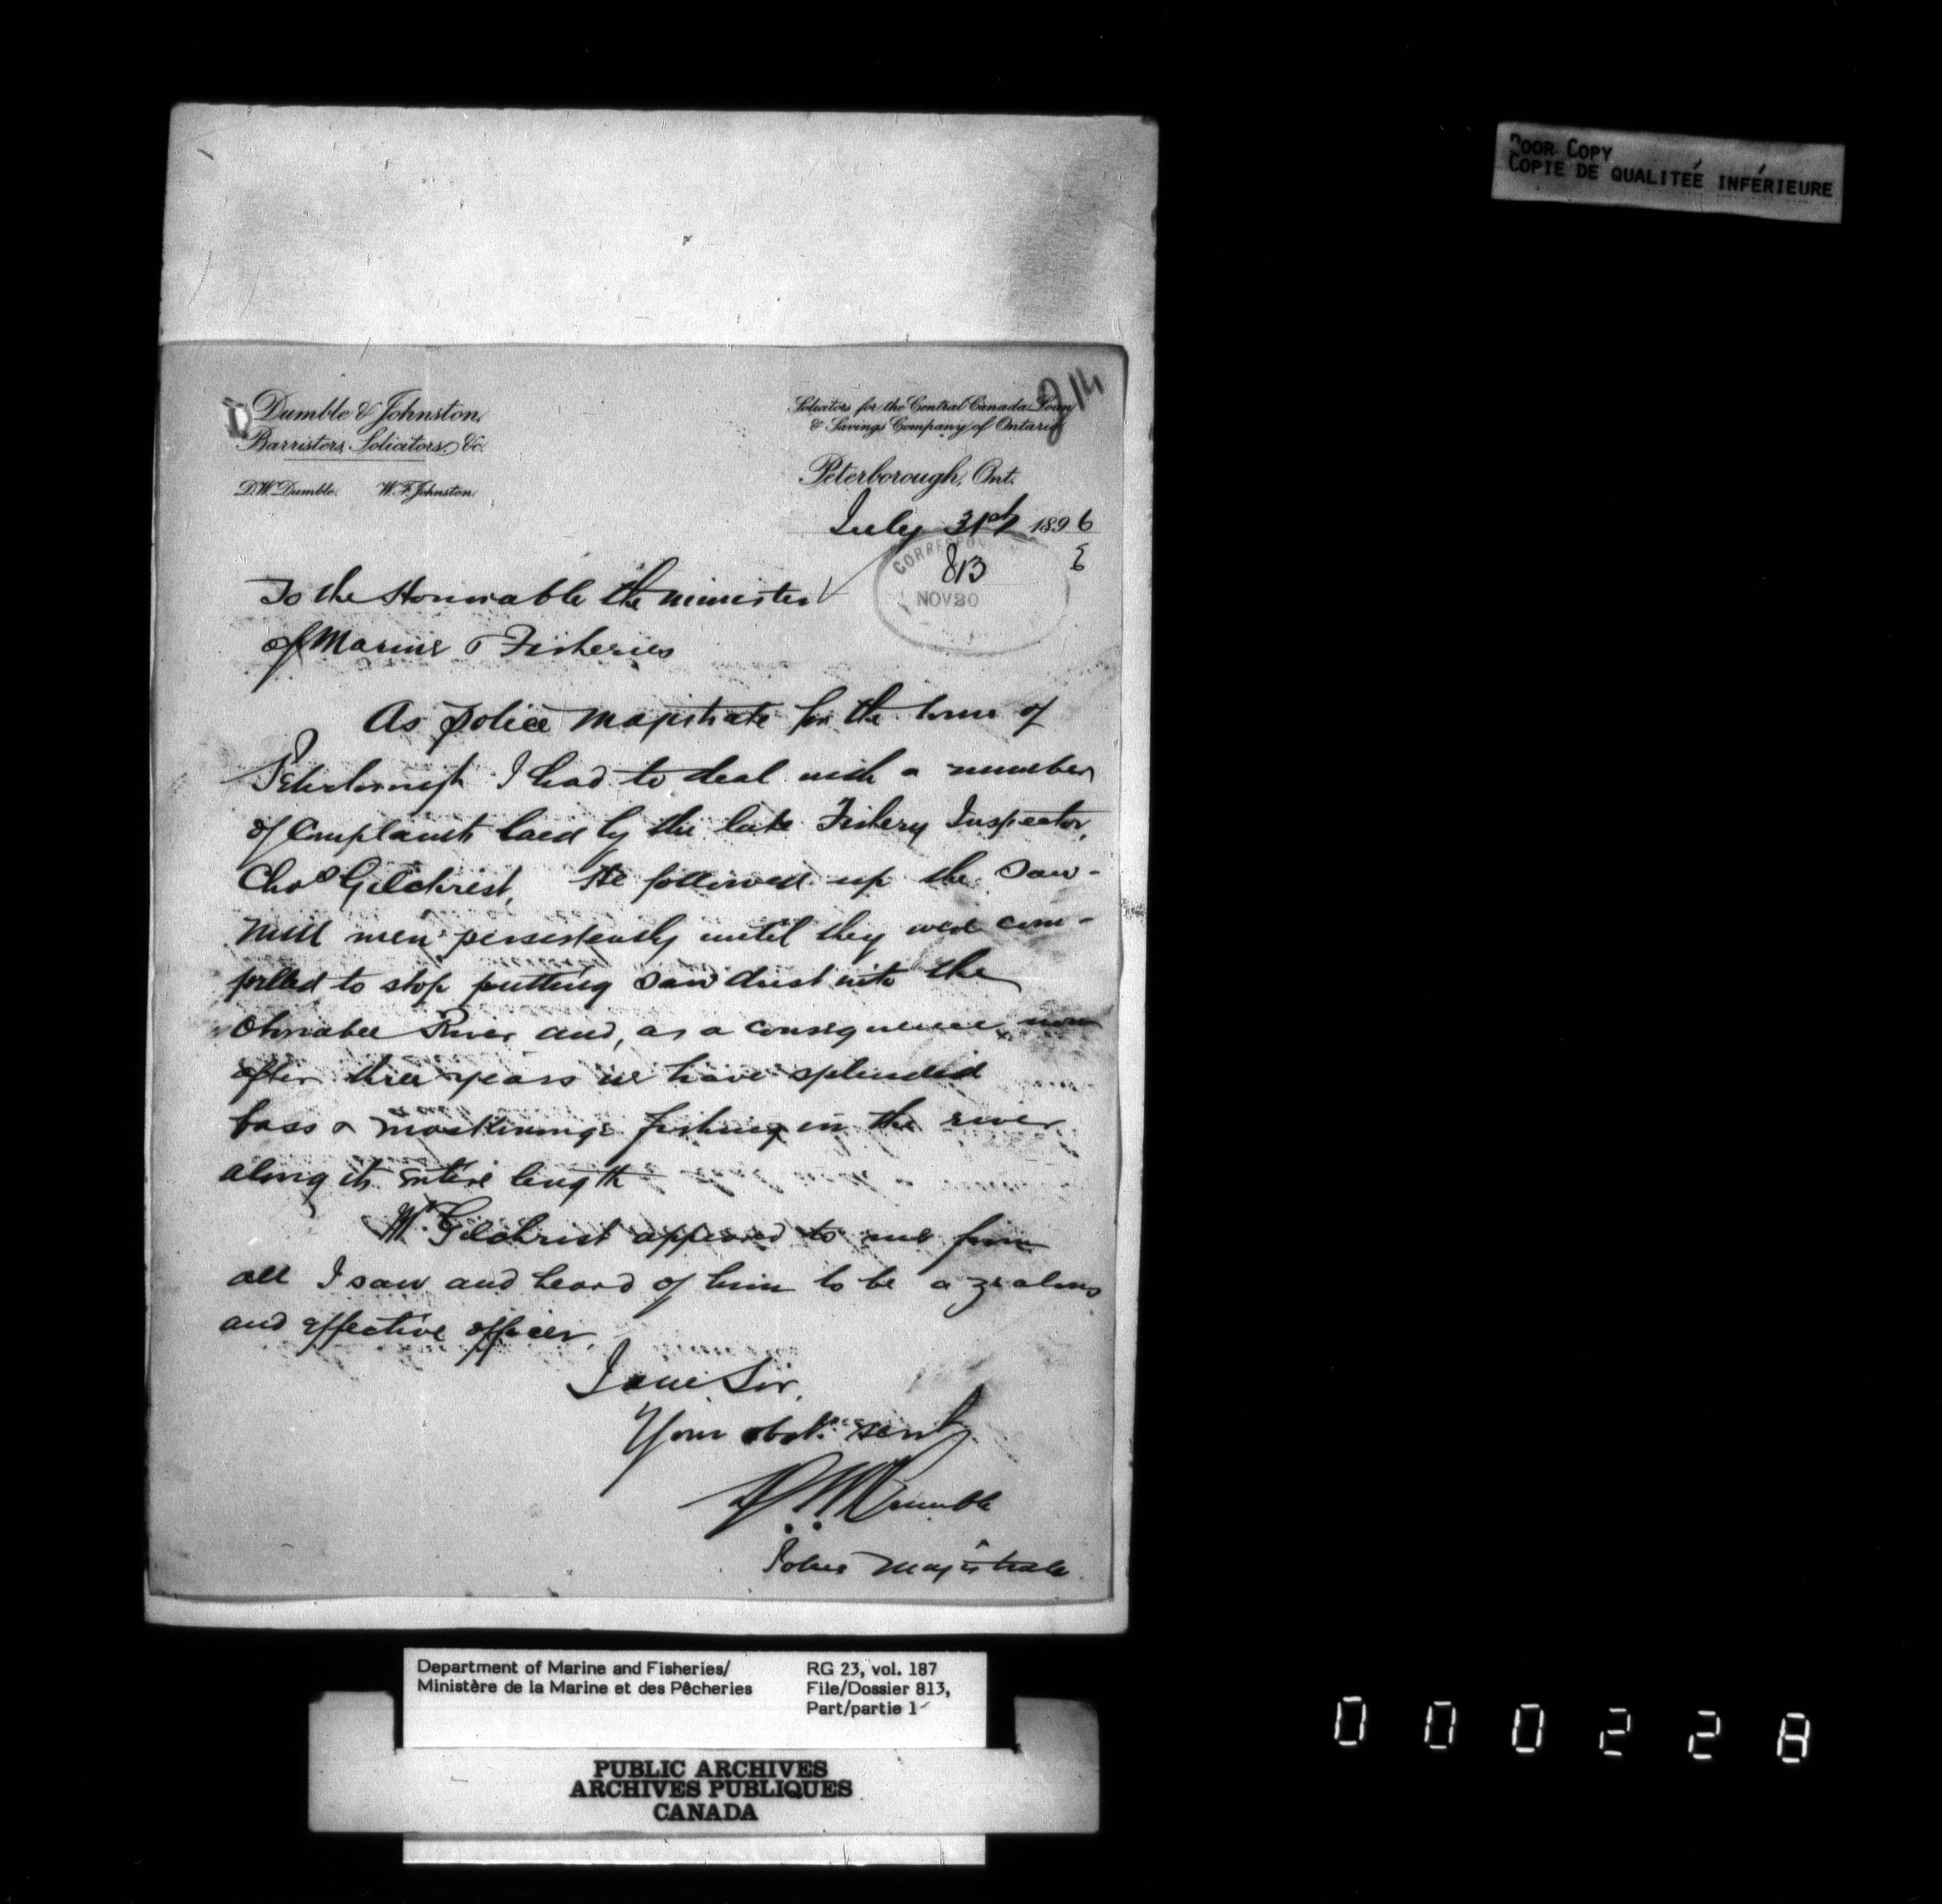 POOR COPY
COPIE DE QUALITEÉ INFÉRIEURE
214
Dumble & Johnston,
Barristers, Solicitors, &c.
D.W. Dumble. W.F. Johnston.
Solicitors for the Central Canada Loan
& Savings Company of Ontario
Peterborough, Ont.
July 31st 1896
CORRESPON
813
NOV 20
To the Honorable the minister
of Marine & Fisheries
As police magistrate for the town of
Peterborough I had to deal with a number
of complaints laid by the late Fishery Inspector,
Chas Gilchrist, He followed up the saw-
mill men persistently until they were com-
pelled to stop putting saw dust into the
Otonabee River and, as a consequence, now
after three years we have splendid
bass & maskinonge fishing in the river
along its entire length
Mr. Gilchrist appeared to me from
all I saw and heard of him to be a zealous
and effective officer.
I am Sir,
Your obdt. servt.
D.W. Dumble
Police Magistrate
Department of Marine and Fisheries/
Ministère de la Marine et des Pêcheries
RG 23, vol. 187
File/Dossier 813,
Part/partie 1
PUBLIC ARCHIVES
ARCHIVES PUBLIQUES
CANADA
000228